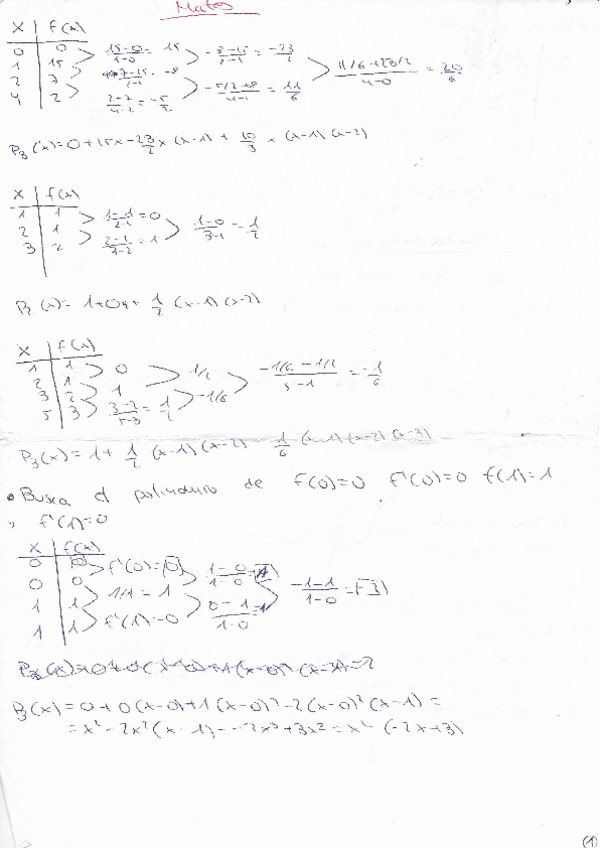 Matos
x | f(x)
0 | 0
1 | 15
2 | 7
4 | 2
15-0/1-0 = 15
7-15/2-1 = -8
2-7/4-2 = -5/2
-8-15/2-1 = -23/2
-5/2+8/4-1 = 11/6
11/6+23/2/4-0 = 20/6
P3(x)=0+15x-23/2 x (x-1) + 10/3 x (x-1)(x-2)
x | f(x)
1 | 1
2 | 1
3 | 2
1-1/2-1 = 0
2-1/3-2 = 1
1-0/3-1 = 1/2
P2(x)= 1+0x+ 1/2 (x-1)(x-2)
x | f(x)
1 | 1
2 | 1
3 | 2
5 | 3
0
1
3-2/5-3 = 1/2
1/2
-1/6
-1/6-1/2/5-1 = -1/6
P3(x)=1+ 1/2 (x-1)(x-2) - 1/6 (x-1)(x-2)(x-3)
• Busca el polinomio de f(0)=0 f'(0)=0 f(1)=1
, f'(1)=0
x | f(x)
0 | 0
0 | 0
1 | 1
1 | 1
f'(0)=0
1/1 = 1
f'(1)=0
1-0/1-0 = 1
0-1/1-0 = -1
-1-1/1-0
P3(x)=0+0(x-0)+1(x-0)²-2(x-0)²(x-1)=
=x²-2x²(x-1)=-2x³+3x²=x²(-2x+3)
(1)